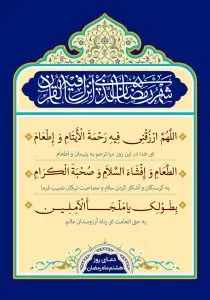 شهر رمضان الذی انزل فیه القرآن
اللّهُمَّ ارْزُقْنِی فِیهِ رَحْمَةَ الْأَیْتَامِ وَ إِطْعَامَ
ای خدا در این روز مرا ترحم به یتیمان و اطعام
الطَّعَامِ وَ إِفْشَاءَ السَّلَامِ وَ صُحْبَةَ الْکِرَامِ
به گرسنگان و آشکار کردن سلام و مصاحبت نیکان نصیب فرما
بِطَوْلِکَ یَا مَلْجَأَ الْآمِلِینَ
به حق انعامت ای پناه آرزومندان عالم.
دعای روز
هشتم ماه رمضان